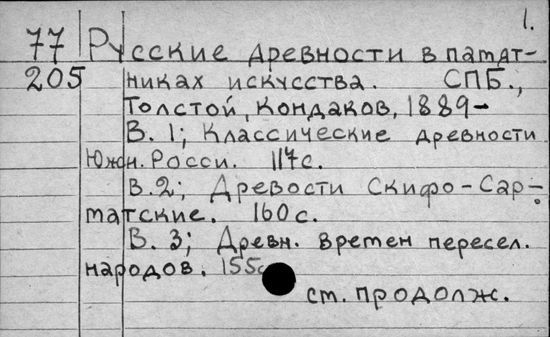 1.
77 Русские древности в памят-
205 никах искусства. СПБ.,
Толстой, Кондаков, 1889-
В. 1; Классические древности
Южн. Росси. 117с.
В.2; Древости Скифо-Сар-
матские. 160с.
В. 3; Древн. времен пересел.
народов. 155с
ст. продолж.